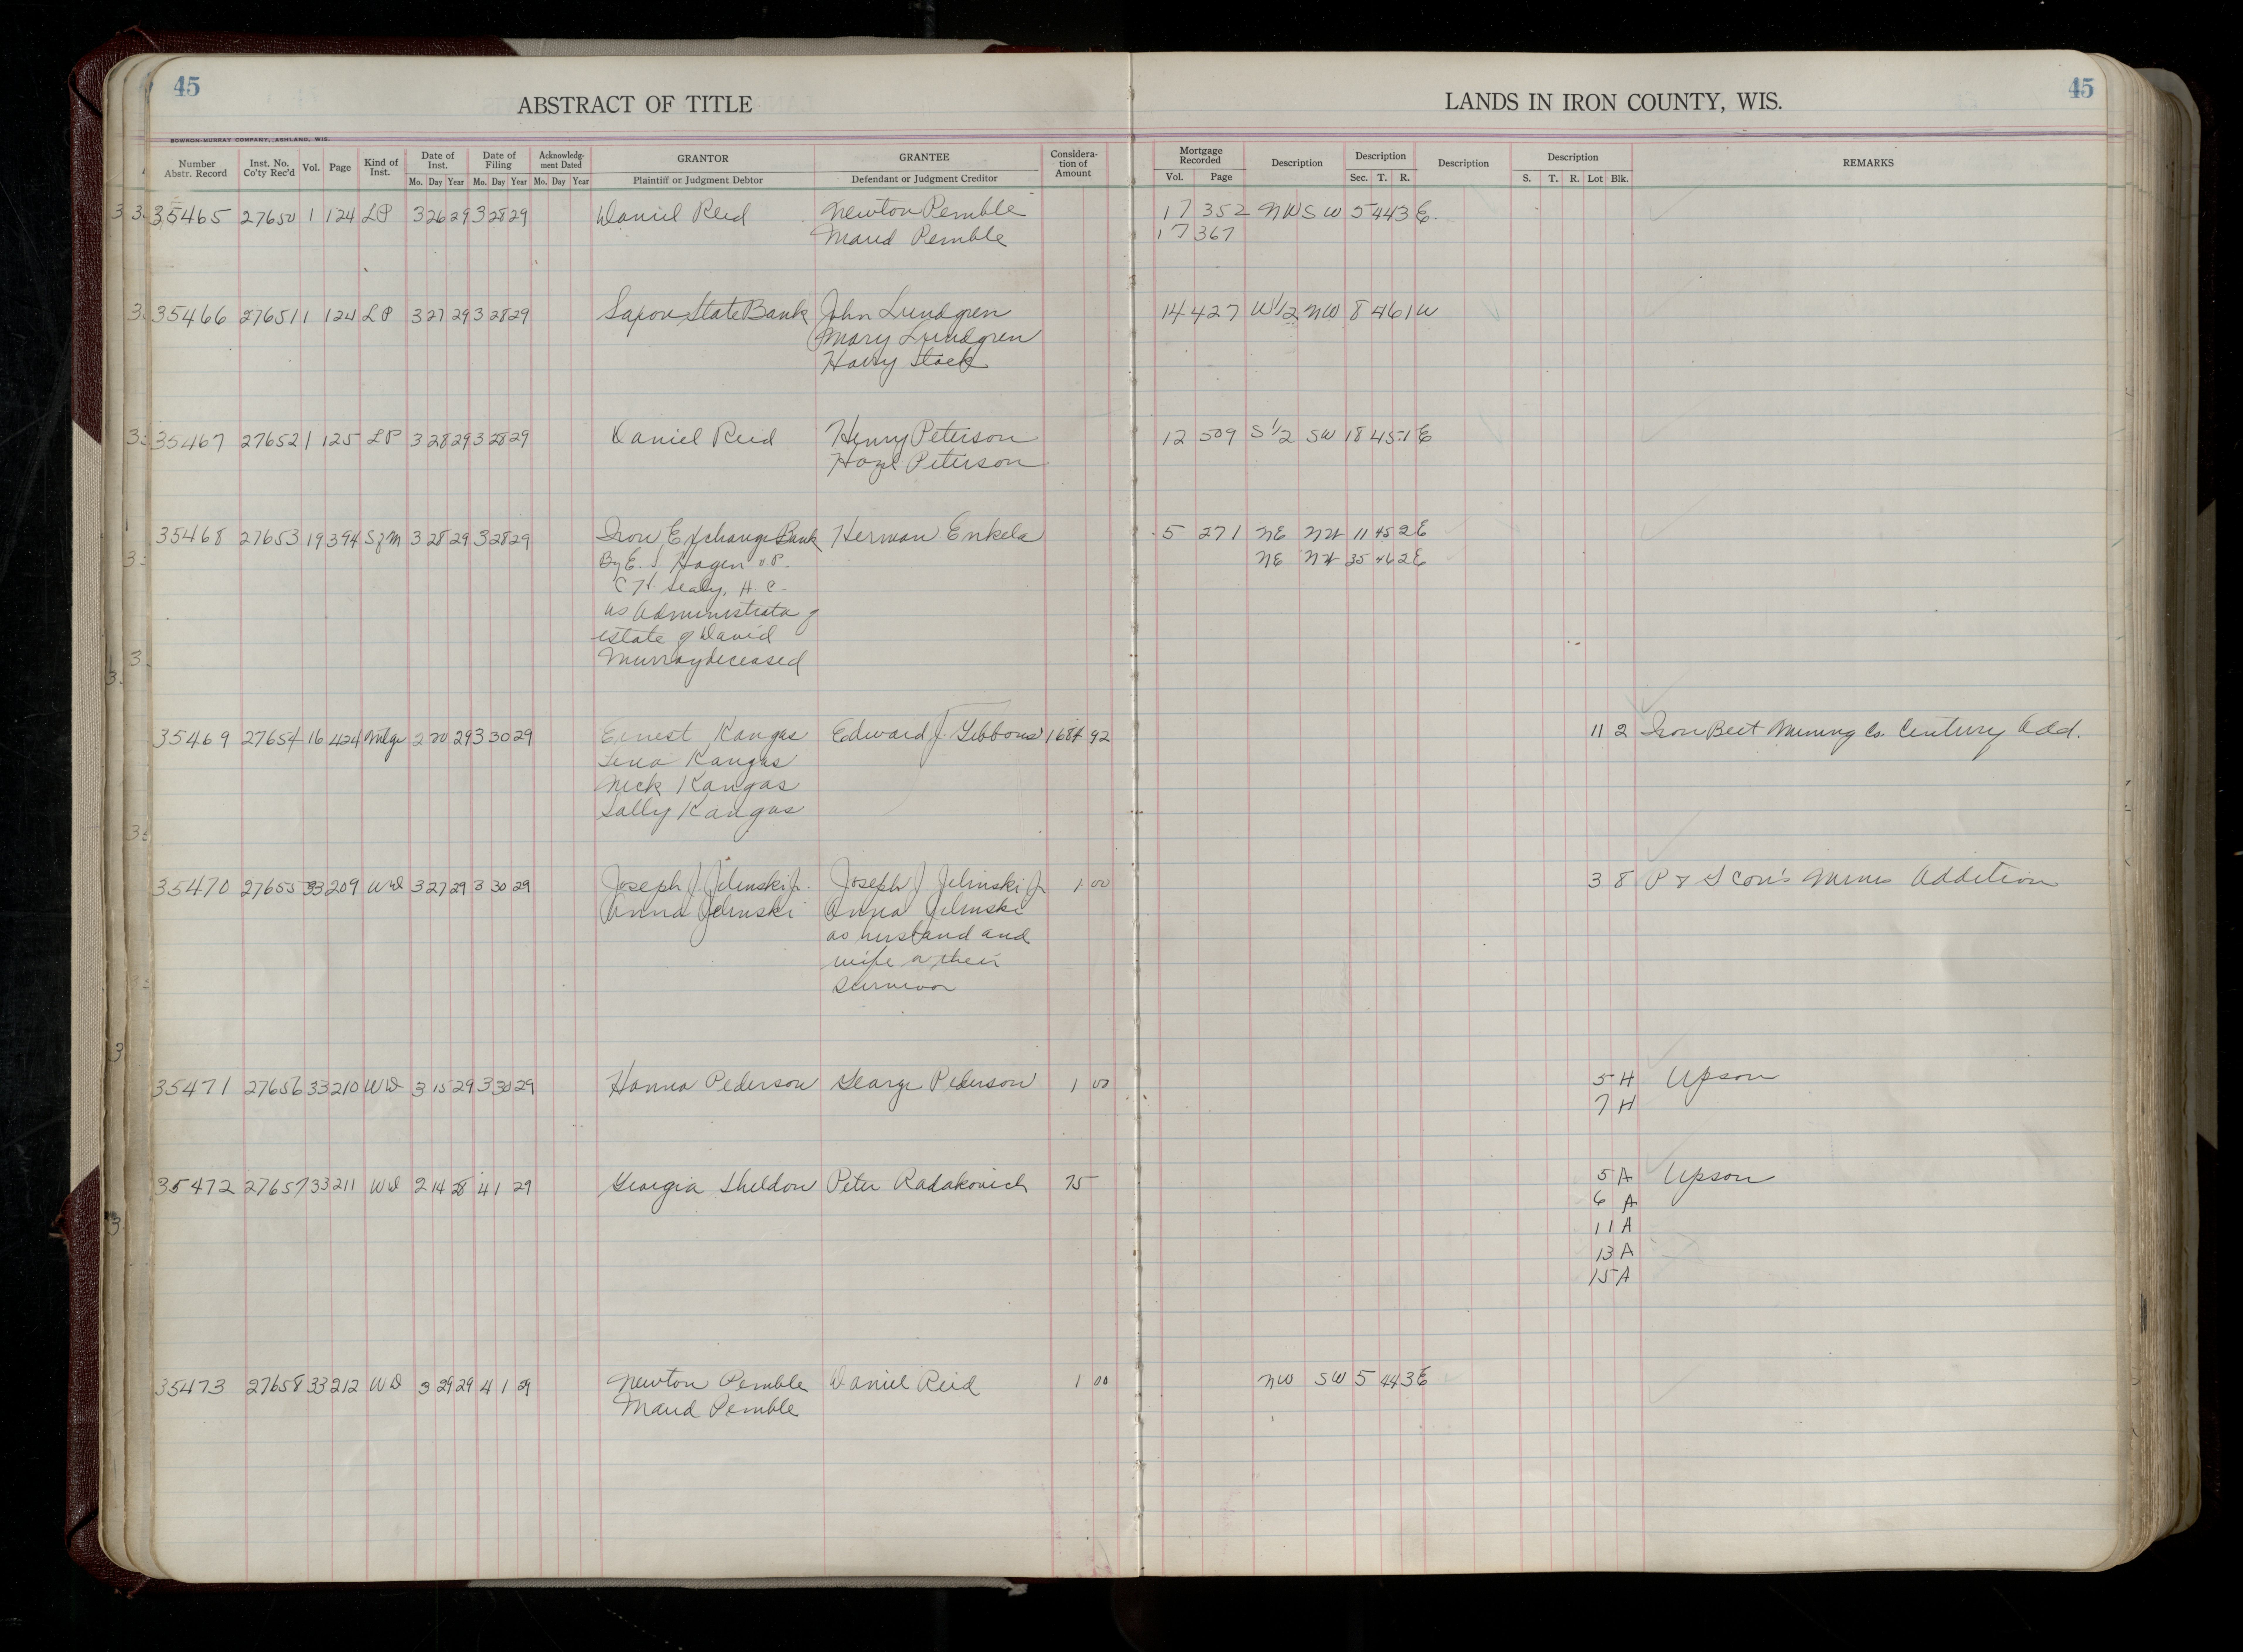 45
45
ABSTRACT OF TITLE
LANDS IN IRON COUNTY, WIS.
BOWRON-MURRAY COMPANY, ASHLAND, WIS.
Number Abstr. Record Inst. No. Co'ty Rec'd Vol. Page Kind of Inst. Date of Inst. Date of Filing Acknowledg-ment Dated GRANTOR GRANTEE Considera-tion of Amount Mortgage Recorded Description Description Description Description REMARKS
Mo. Day Year Mo. Day Year Mo. Day Year Plaintiff or Judgment Debtor Defendant or Judgment Creditor Vol. Page Sec. T. R. S. T. R. Lot Blk.
35465 27650 1 124 LP 3 26 29 3 28 29 Daniel Reid Newton Pemble 17 352 NW SW 5 44 3 E.
Maud Pemble 17 367
35466 27651 1 124 LP 3 27 29 3 28 29 Saxon State Bank John Lundgren 14 427 W1/2 NW 8 46 1 W
Mary Lundgren
Harry Stack
35467 27652 1 125 LP 3 28 29 3 28 29 Daniel Reid Henry Peterson 12 509 S1/2 SW 18 45 1 E
Hazel Peterson
35468 27653 19 394 S of M 3 28 29 3 28 29 Iron Exchange Bank Herman Enkela 5 271 NE NW 11 45 2 E
By E. J. Hagen V.P. NE NW 35 46 2 E
C H. Sealy, H. C.
as Administrator of
estate of David
Murray deceased
35469 27654 16 424 Mtge 2 20 29 3 30 29 Ernest Kangas Edward J. Gibbons 1684 92 11 2 Iron Belt Mining Co. Century Add.
Lena Kangas
Nick Kangas
Sally Kangas
35470 27655 33 209 WD 3 27 29 3 30 29 Joseph J. Jelinski Jr. Joseph J Jelinski Jr 1 00 3 8 P & S Con's Mines Addition
Anna Jelinski Anna Jelinski
as husband and
wife or their
survivor
35471 27656 33 210 WD 3 15 29 3 30 29 Hanna Pederson George Pederson 1 00 5 H Upson
7 H
35472 27657 33 211 WD 2 14 28 4 1 29 Georgia Sheldon Peter Radakovich 75 5 A Upson
6 A
11 A
13 A
15 A
35473 27658 33 212 WD 3 29 29 4 1 29 Newton Pemble Daniel Reid 1 00 NW SW 5 44 3 E
Maud Pemble